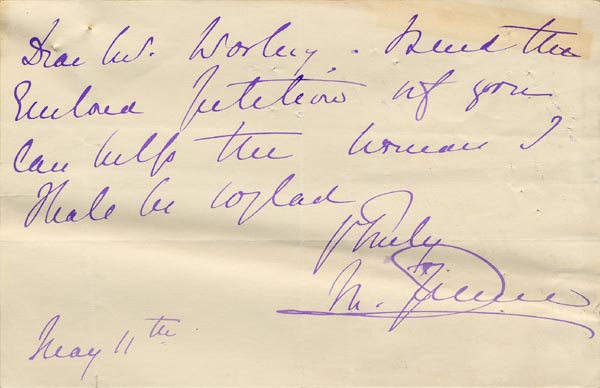 Dear Mr. Worley. I send the
Enclosed petition if you
can help the woman I
shale be glad
truly
M.
May 11th